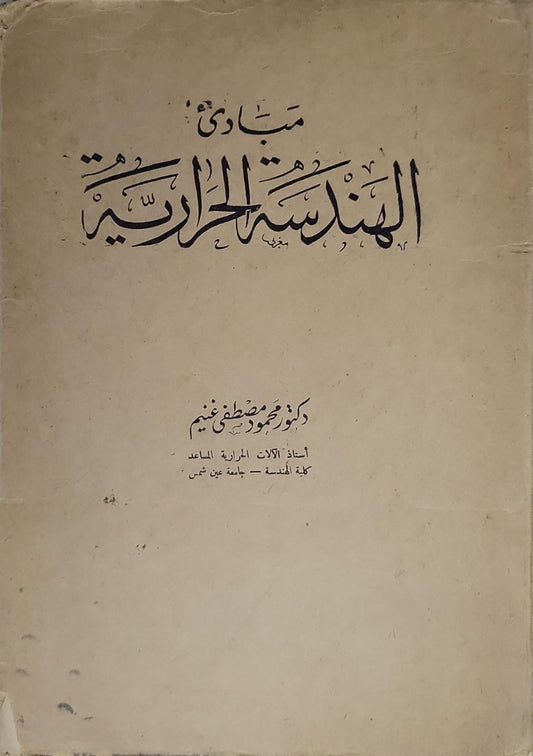 مبادئ
الهندسة الحرارية
دكتور محمود مصطفى غنيم
أستاذ الآلات الحرارية المساعد
كلية الهندسة — جامعة عين شمس